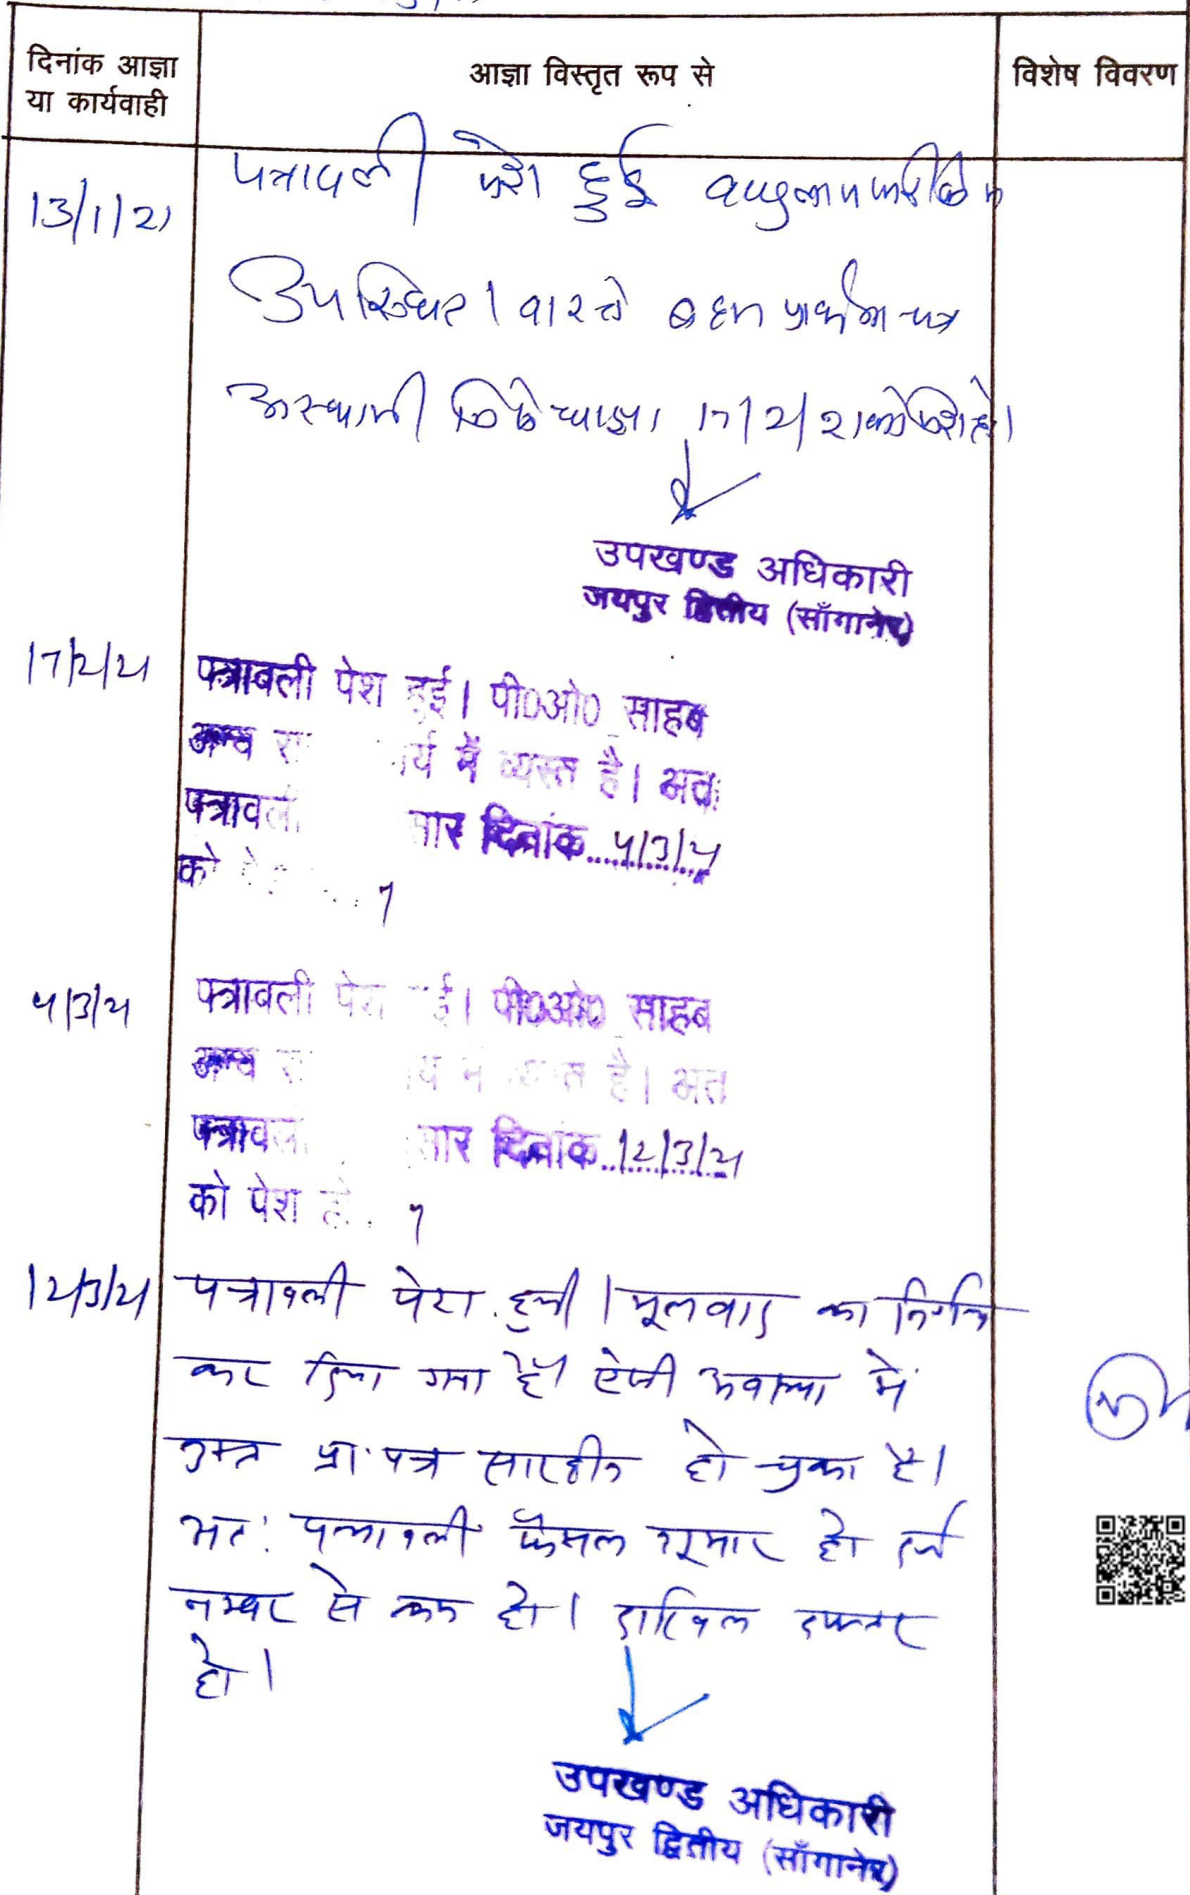 दिनांक आज्ञा
या कार्यवाही
आज्ञा विस्तृत रूप से
विशेष विवरण
13/1/21
पत्रावली पेश हुई
उपस्थित। वास्ते बहस प्रार्थना पत्र
अस्थायी निषेधाज्ञा 17/2/21 को पेश हो।
उपखण्ड अधिकारी
जयपुर द्वितीय (साँगानेर)
17/2/21
पत्रावली पेश हुई। पी0ओ0 साहब
अन्य रा र्य में व्यस्त है। अतः
पत्रावली सार दिनांक....4/3/21
को
4/3/21
पत्रावली पेश ई। पी0ओ0 साहब
अन्य रा र्य में व्यस्त है। अत
पत्रावल सार दिनांक...12/3/21
को पेश हो
12/3/21
पत्रावली पेश हुयी। मूलवाद का निर्णय
कर दिया गया है। ऐसी अवस्था में
उक्त प्रा. पत्र सारहीन हो चुका है।
अतः पत्रावली फैसल शुमार हो दर्ज
नम्बर से कम हो। दाखिल दफ्तर
हो।
उपखण्ड अधिकारी
जयपुर द्वितीय (साँगानेर)